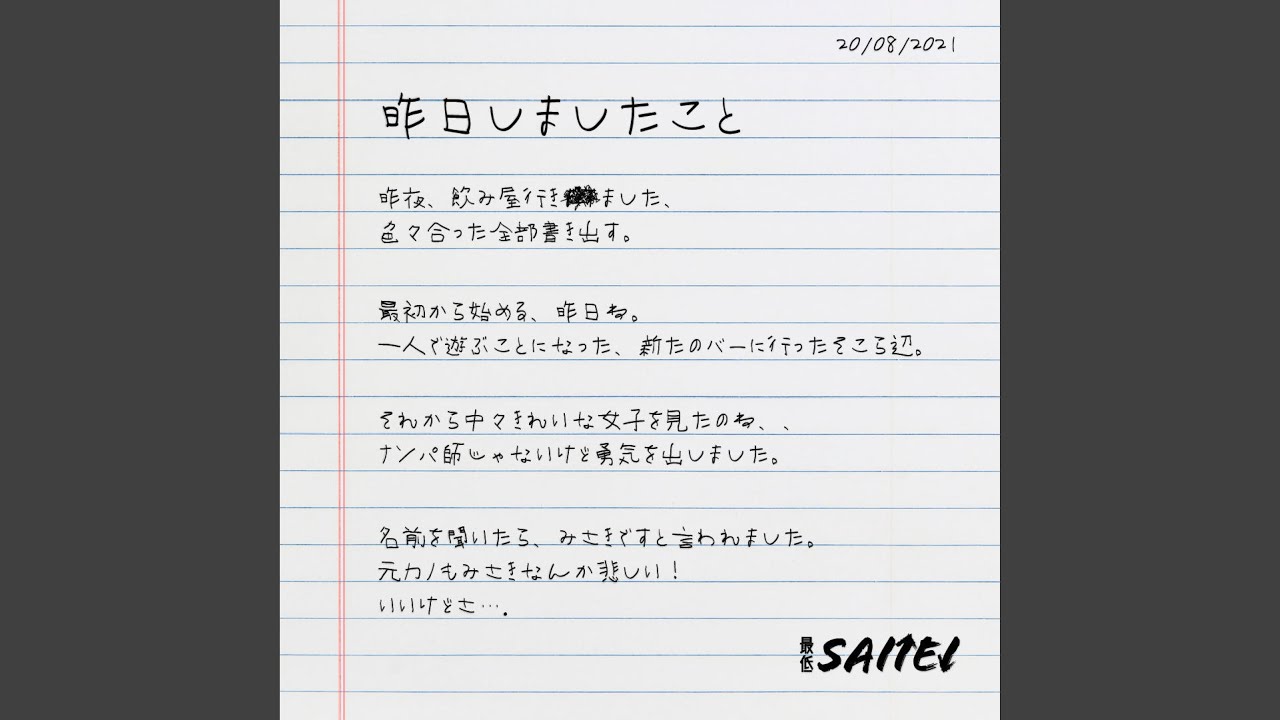 20/08/2021
昨日しましたこと
昨夜、飲み屋行きました、
色々合った全部書き出す。
最初から始める、昨日ね。
一人で遊ぶことになった、新たのバーに行ったそこら辺。
それから中々きれいな女子を見たのね、、
ナンパ師じゃないけど勇気を出しました。
名前を聞いたら、みさきですと言われました。
元カノもみさきなんか悲しい!
いいけどさ….
最低 SAITEI